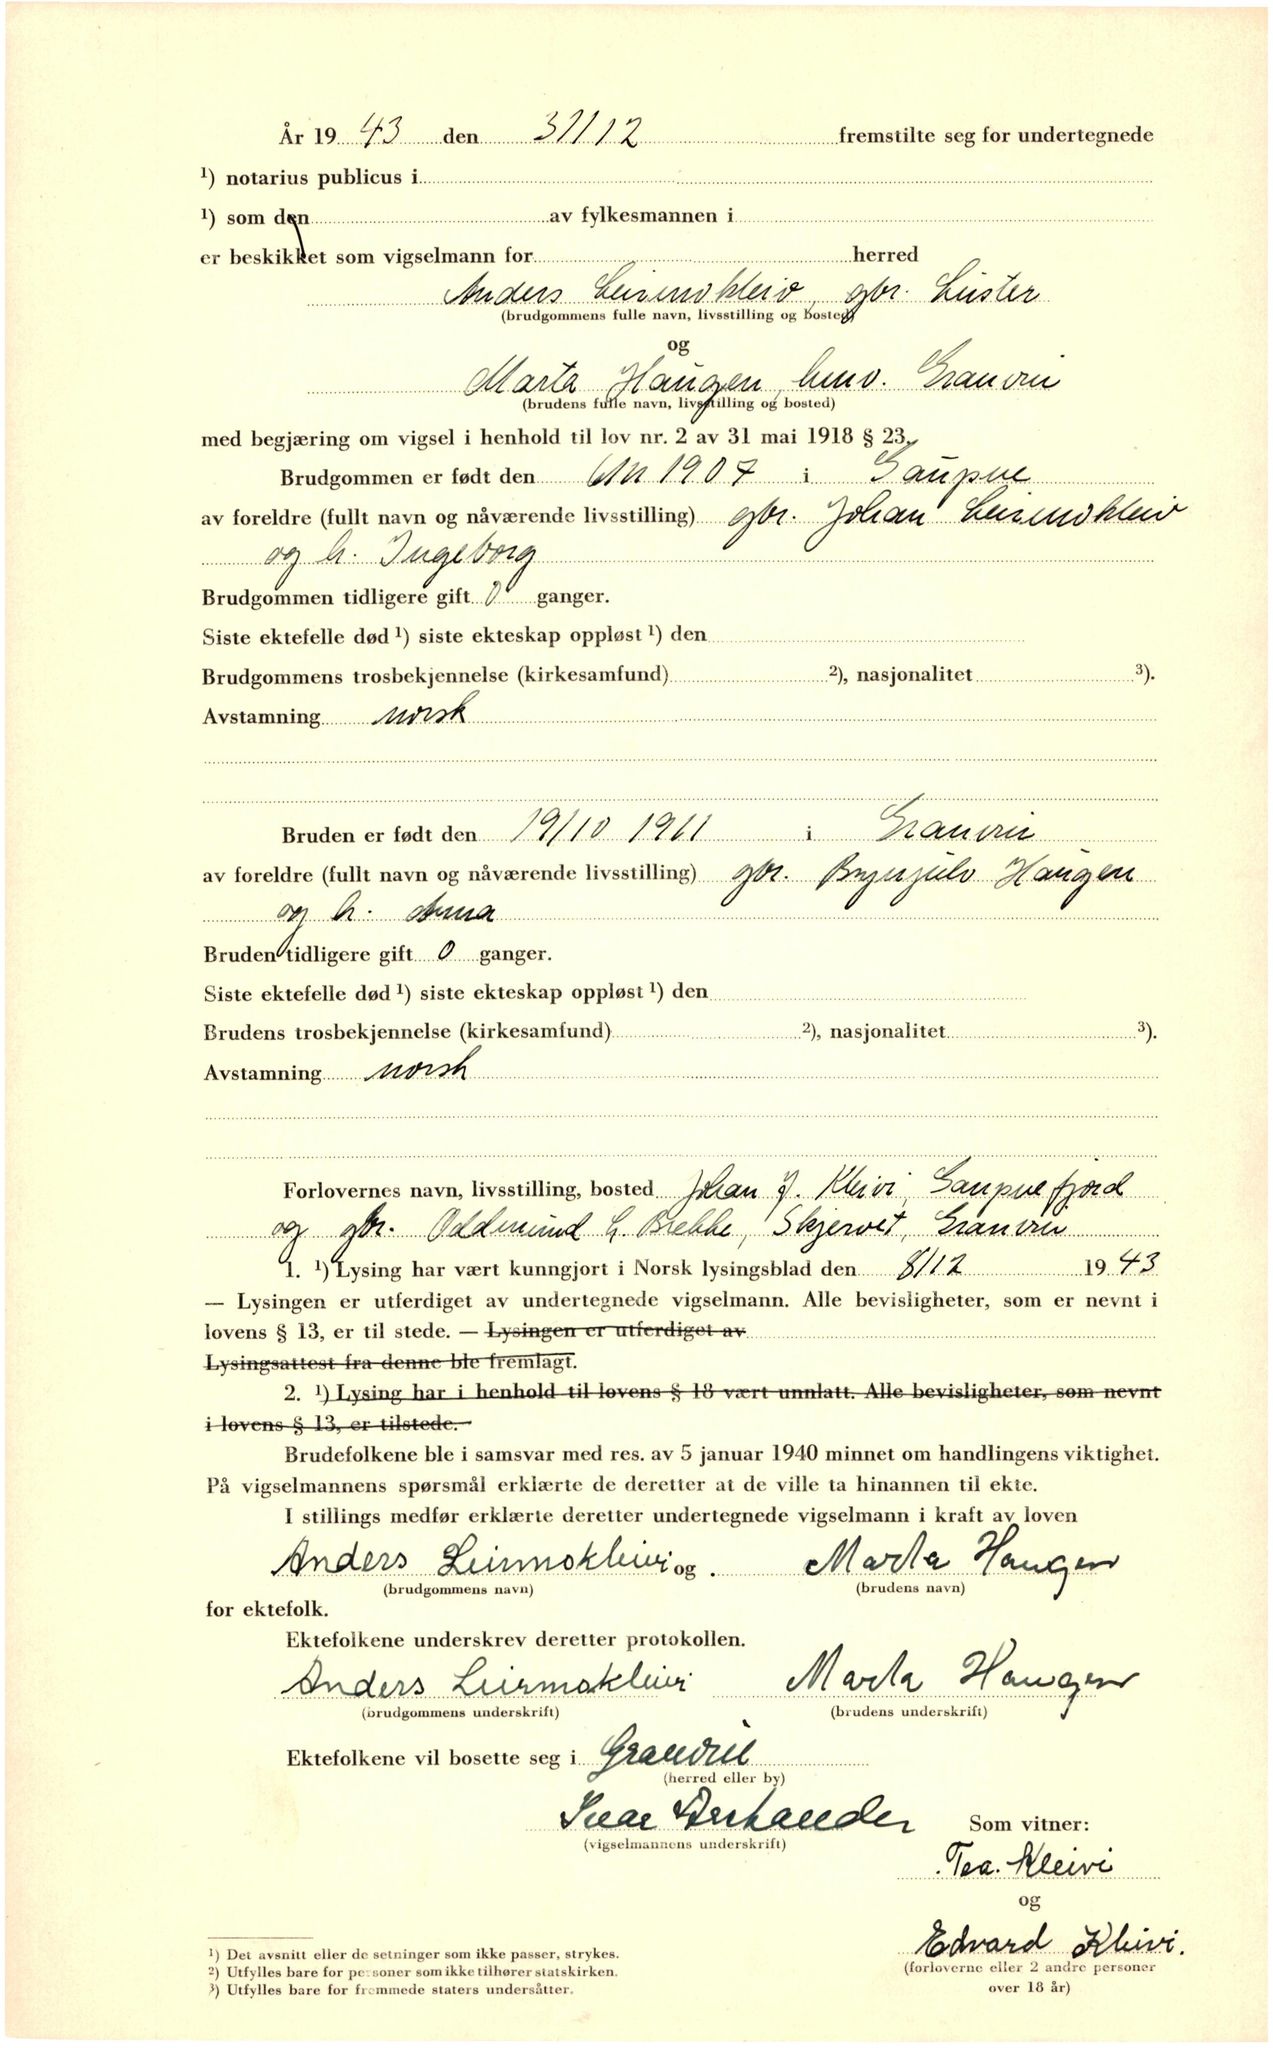 År 19 43 den 31/12 fremstilte seg for undertegnede
¹) notarius publicus i
¹) som den av fylkesmannen i
er beskikket som vigselmann for herred
Anders Leirmokleiv, gbr. Luster
(brudgommens fulle navn, livsstilling og bosted)
og
Marta Haugen, hmv. Granvin
(brudens fulle navn, livsstilling og bosted)
med begjæring om vigsel i henhold til lov nr. 2 av 31 mai 1918 § 23.
Brudgommen er født den 6/11 1907 i Gaupne
av foreldre (fullt navn og nåværende livsstilling) gbr. Johan Leirmokleiv
og h. Ingeborg
Brudgommen tidligere gift 0 ganger.
Siste ektefelle død ¹) siste ekteskap oppløst ¹) den
Brudgommens trosbekjennelse (kirkesamfund) ²), nasjonalitet ³).
Avstamning norsk
Bruden er født den 19/10 1911 i Granvin
av foreldre (fullt navn og nåværende livsstilling) gbr. Brynjulv Haugen
og h. Anna
Bruden tidligere gift 0 ganger.
Siste ektefelle død ¹) siste ekteskap oppløst ¹) den
Brudens trosbekjennelse (kirkesamfund) ²), nasjonalitet ³).
Avstamning norsk
Forlovernes navn, livsstilling, bosted Johan J. Kleivi, Gaupnefjord
og gbr. Oddmund G. Brekke, Skjervet, Granvin
1. ¹) Lysing har vært kunngjort i Norsk lysingsblad den 8/12 19 43
— Lysingen er utferdiget av undertegnede vigselmann. Alle bevisligheter, som er nevnt i
lovens § 13, er til stede. — Lysingen er utferdiget av
Lysingsattest fra denne ble fremlagt.
2. ¹) Lysing har i henhold til lovens § 18 vært unnlatt. Alle bevisligheter, som nevnt
i lovens § 13, er tilstede.
Brudefolkene ble i samsvar med res. av 5 januar 1940 minnet om handlingens viktighet.
På vigselmannens spørsmål erklærte de deretter at de ville ta hinannen til ekte.
I stillings medfør erklærte deretter undertegnede vigselmann i kraft av loven
Anders Leirmokleivi og Marta Haugen
(brudgommens navn) (brudens navn)
for ektefolk.
Ektefolkene underskrev deretter protokollen.
Anders Leirmokleivi Marta Haugen
(brudgommens underskrift) (brudens underskrift)
Ektefolkene vil bosette seg i Granvin
(herred eller by)
Som vitner:
(vigselmannens underskrift)
Tea. Kleivi
og
Edvard Kleivi.
(forloverne eller 2 andre personer
over 18 år)
¹) Det avsnitt eller de setninger som ikke passer, strykes.
²) Utfylles bare for personer som ikke tilhører statskirken.
³) Utfylles bare for fremmede staters undersåtter.